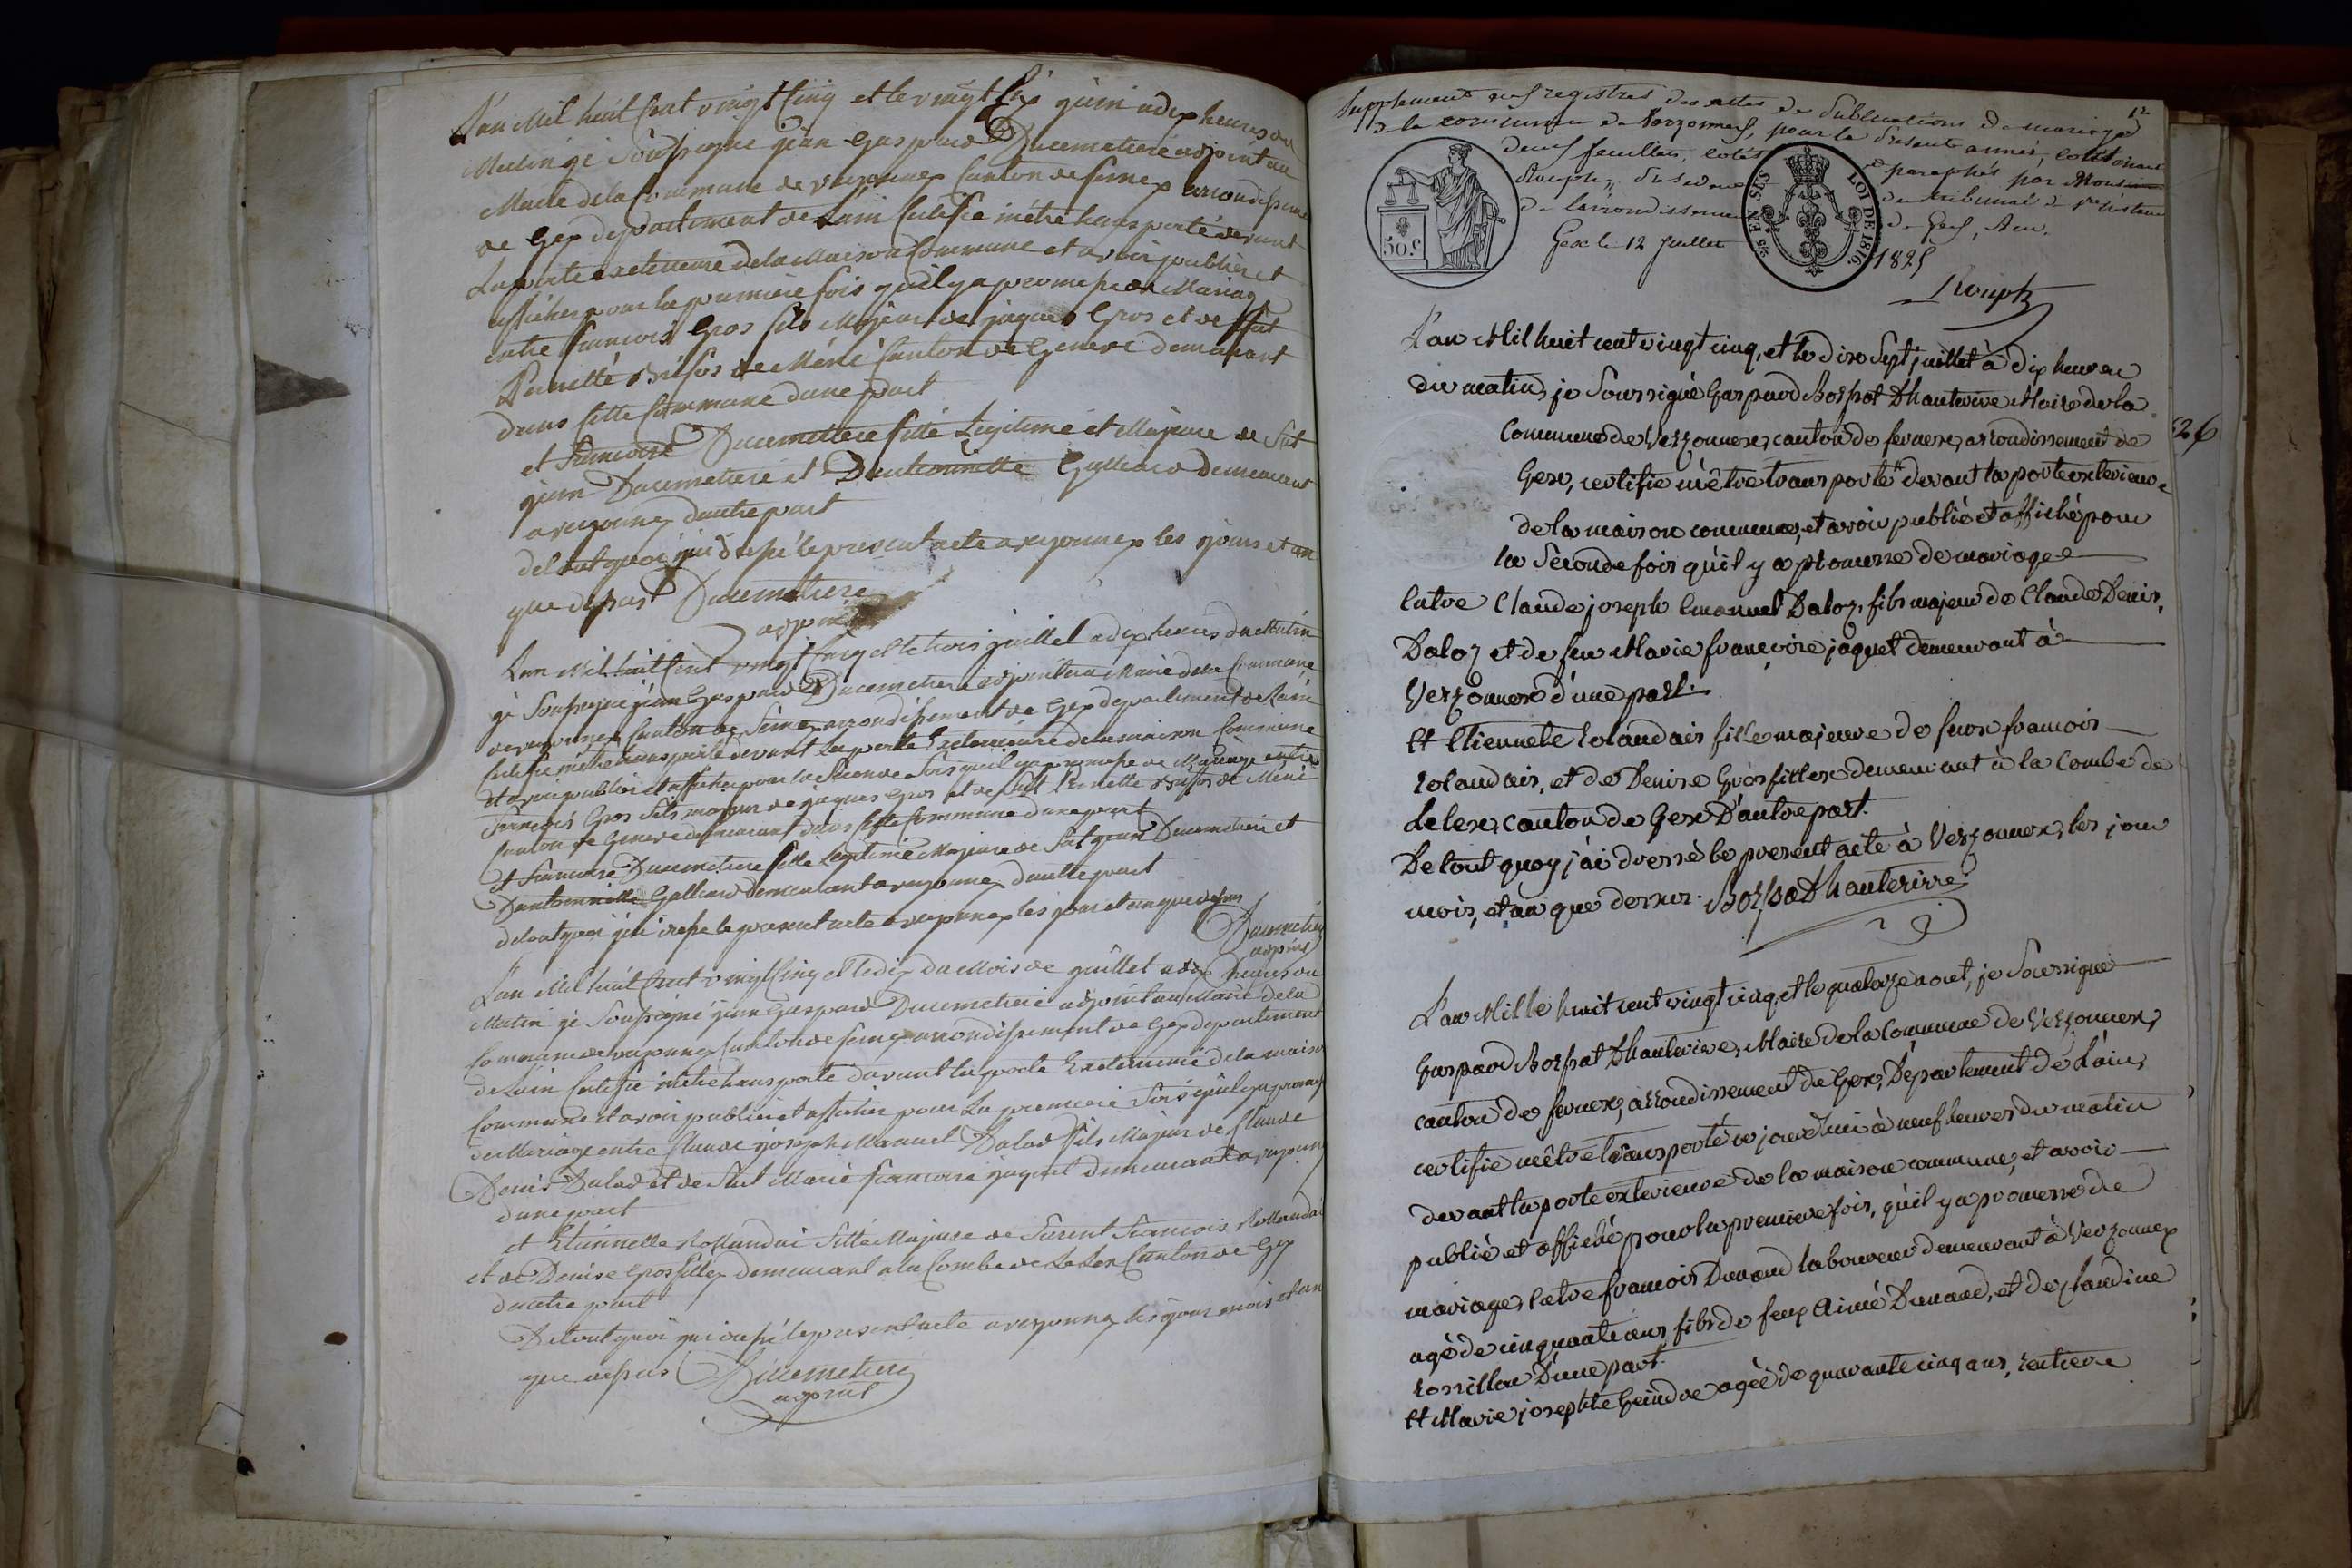 L'an Mil huit Cent vingt Cinq et le vingt Six juin a dix heures du
Matin je Soussigné jean Gaspard Ducimetiere adjoint au
Maire de la Commune de versonnex Canton de fernex arrondissement
de Gex departement de Lain Certifie mètre transporté devant
La porte exterieure de la Maison Commune et avoir publier et
afficher pour la premiere fois quil y a promesse de Mariage
entre francois Gros fils Majeur de jaques Gros et de
Pernette de Méné Canton de Geneve demeurant
dans cette Commune dune part
et francoise Ducimetiere fille Legitime et Majeure de
jean Ducimetiere et Dantoinette Galliard demeurant
a versonnex dautre part
de tout quoi jai dressé le present acte a versonnex les jours et an
que dessus Ducimetiere
adjoint
Lan Mil huit Cent vingt Cinq et le trois juillet a dix heures du Matin
je Soussigné jean Gaspard Ducimetiere adjoint au Maire de la Commune
de versonnex Canton de fernex arrondissement de Gex departement de Lain
Certifie mètre transporté devant La porte Exterieure de la maison Commune
et avoir publier et afficher pour la Seconde fois quil y a promesse de Mariage entre
francois Gros fils majeur de jaques Gros et de Pernette de Méné
Canton de Geneve demeurant dans Cette Commune dune part
et francoise Ducimetiere fille Legitime Majeure de jean Ducimetiere et
Dantoinette Galliard demeurant a versonnex dautre part
de tout quoi jai dressé le present acte a versonnex les jour et an que dessus
Ducimetiere
adjoint
L'an Mil huit Cent vingt Cinq et le dix du Mois de juillet a dix heures du
Matin je Soussigné jean Gaspard Ducimetiere adjoint au Maire de la
Commune de versonnex Canton de fernex arrondissement de Gex departement
de Lain Certifie mètre transporté devant la porte Exterieure de la maison
Commune et avoir publier et afficher pour La premiere fois quil y a promesse
de Mariage entre Claude joseph Manuel Dalod fils Majeur de Claude
Denis Dalod et de Marie francoise jaquet demeurant a versonnex
dune part
et Etiennette Rollandai fille Majeure de francois Rollandai
et de Denise Grosfillex demeurant a la Combe de Lelex Canton de Gex
dautre part
De tout quoi jai dressé le present acte a versonnex les jour mois et an
que dessus Ducimetiere
adjoint
12
Supplement aux registres des actes de Publications de mariage
de la commune de Versonnex, pour la présente année, contenant
deux feuillets, cotés et paraphés par
Rouph, du tribunal de 1re instance
de larrondissement de Gex, Ain.
Gex le 12 juillet 1825
Rouph
50.c
25 EN SUS
LOI DE 1816.
L'an Mil huit cent vingt cinq, et le dix Sept juillet à dix heures
du matin, je Soussigné Gaspard Borssat Dhauterive Maire de la
commune de Verzonnex, canton de fernex, arrondissement de
Gex, certifie m'être transporté devant la porte exterieure
de la maison commune, et avoir publié et affiché pour
la Seconde fois qu'il y a promesse de mariage
Entre Claude joseph Emanuel Daloz, fils majeur de Claude Denis
Daloz et de feu Marie françoise jaquet demeurant à
Verzonnex d'une part.
Et Etiennete Rolandais fille majeure de feux francois
Rolandais, et de Denise Grosfillex demeurant à la Combe de
Lelex, canton de Gex D'autre part.
De tout quoy j'ai dressé le present acte à Verzonnex, les jour
mois, et an que dessus. Borssat Dhauterive
26
L'an Mille huit cent vingt cinq, et le quatorze aout, je Soussigné
Gaspard Borssat Dhauterive, Maire de la Commune de Verzonnex,
canton de fernex, arrondissement de Gex, Département de L'ain,
certifie m'être transporté ce jourd'hui à neuf heures du matin
devant la porte exterieure de la maison commune, et avoir
publié et affiché pour la premiere fois, qu'il y a promesse de
mariage, Entre francois Dunand laboureur demeurant à Verzonnex
agé de cinquante ans, fils de feux Aimé Dunand, et de Claudine
Rossillon D'une part.
Et Marie josephte Geindre agée de quarante cinq ans, rentiere